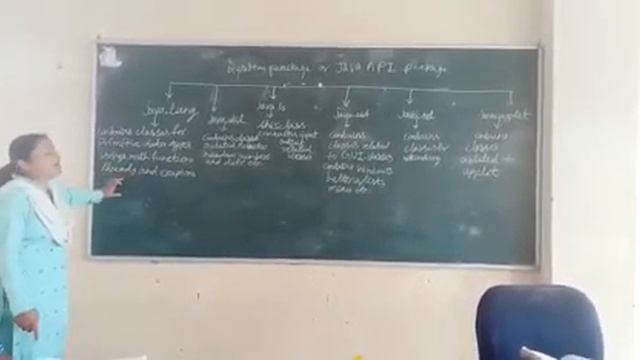 System package or JAVA API package
java.lang
contains classes for
primitive data types
strings math functions
threads and
java.util
contains
numbers
and date etc.
java.io
this class
input
output
related
classes
java.awt
contains
classes related
to GUI classes
contains windows
buttons lists
menu etc.
java.net
contains
classes for
networking
java.applet
contains
classes
related to
applet